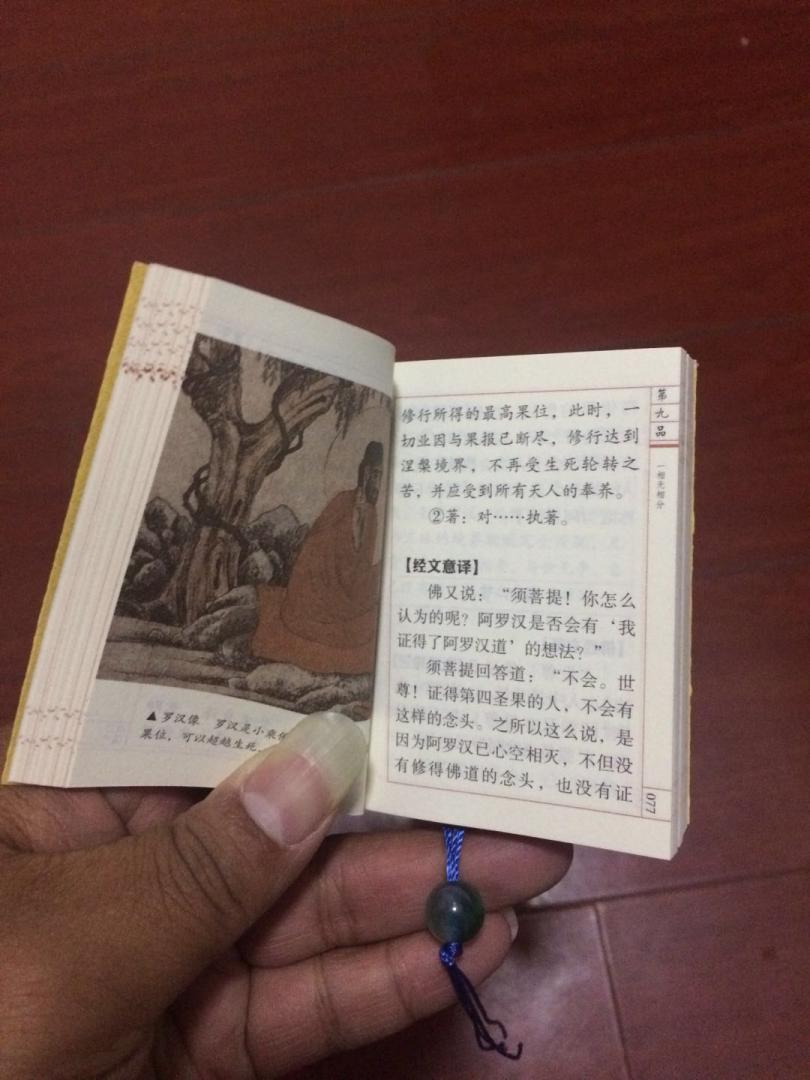 ▲罗汉像 罗汉是小乘
果位，可以超越生死
修行所得的最高果位，此时，一
切业因与果报已断尽，修行达到
涅槃境界，不再受生死轮转之
苦，并应受到所有天人的奉养。
②著：对……执著。
【经文意译】
佛又说：“须菩提！你怎么
认为的呢？阿罗汉是否会有‘我
证得了阿罗汉道’的想法？”
须菩提回答道：“不会。世
尊！证得第四圣果的人，不会有
这样的念头。之所以这么说，是
因为阿罗汉已心空相灭，不但没
有修得佛道的念头，也没有证
第九品
一相无相分
077